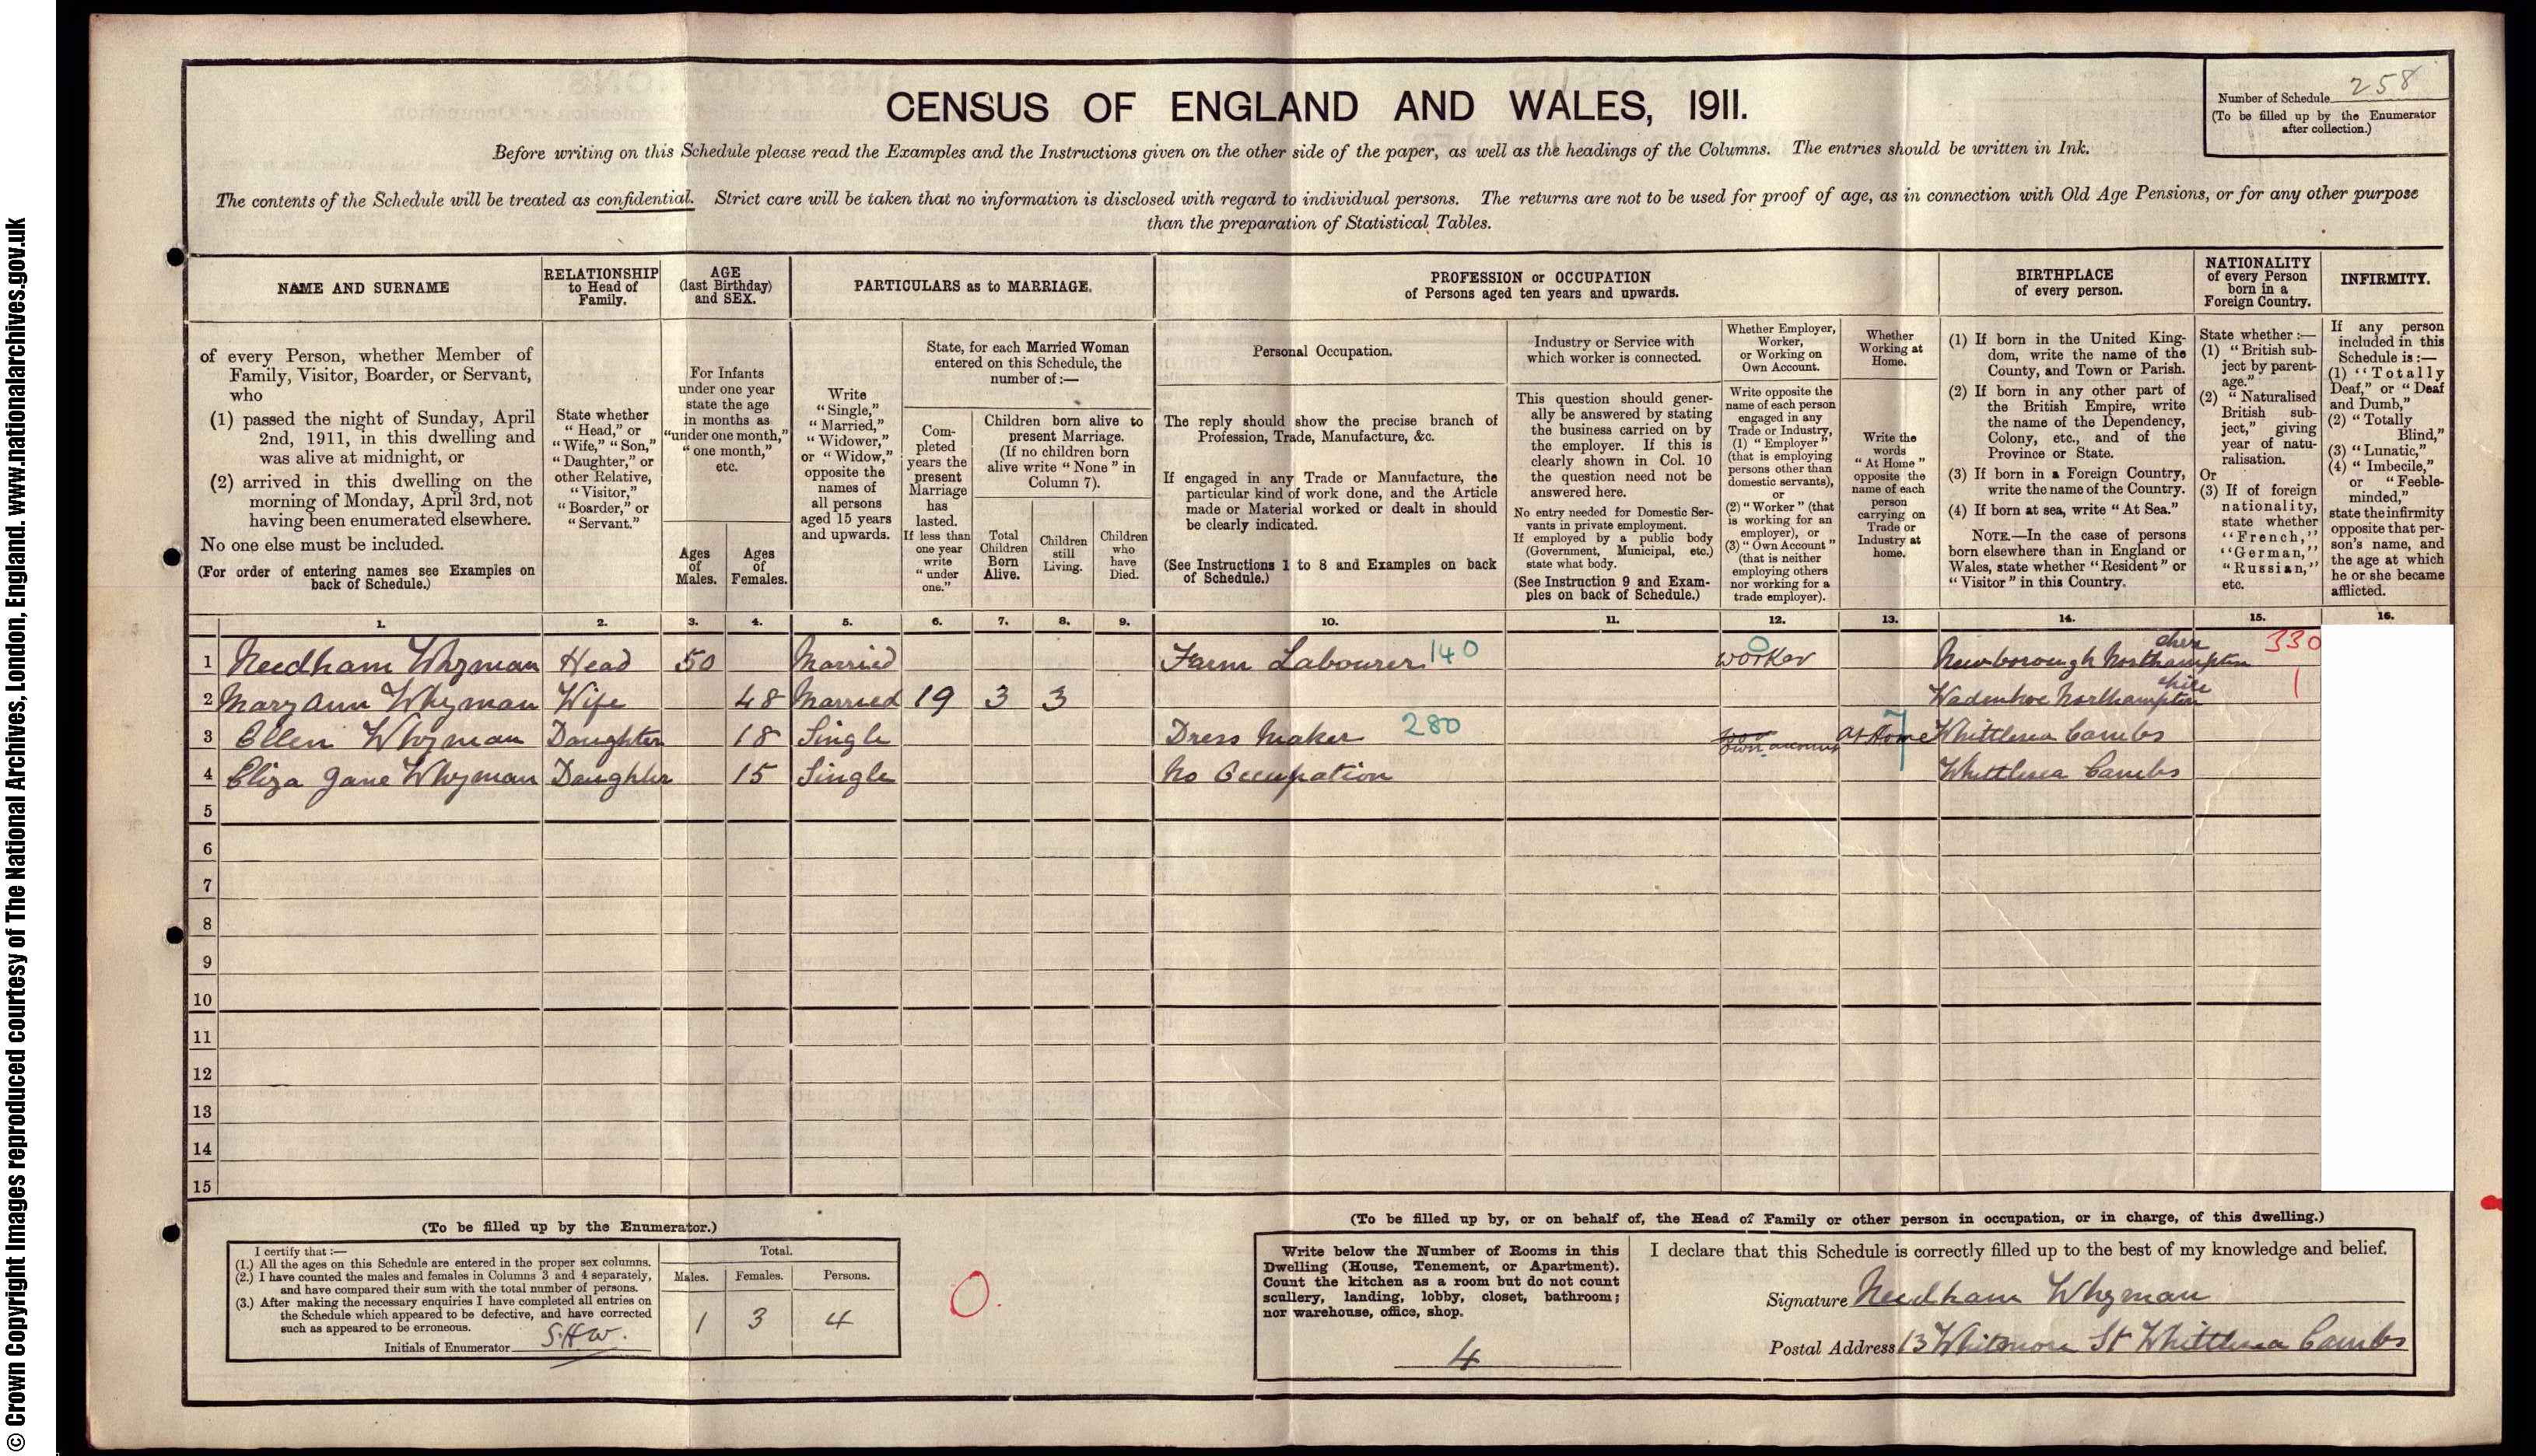 © Crown Copyright Images reproduced courtesy of The National Archives, London, England. www.nationalarchives.gov.uk
CENSUS OF ENGLAND AND WALES, 1911.
Number of Schedule 258
(To be filled up by the Enumerator
after collection.)
Before writing on this Schedule please read the Examples and the Instructions given on the other side of the paper, as well as the headings of the Columns. The entries should be written in Ink.
The contents of the Schedule will be treated as confidential. Strict care will be taken that no information is disclosed with regard to individual persons. The returns are not to be used for proof of age, as in connection with Old Age Pensions, or for any other purpose
than the preparation of Statistical Tables.
NAME AND SURNAME
of every Person, whether Member of
Family, Visitor, Boarder, or Servant,
who
(1) passed the night of Sunday, April
2nd, 1911, in this dwelling and
was alive at midnight, or
(2) arrived in this dwelling on the
morning of Monday, April 3rd, not
having been enumerated elsewhere.
No one else must be included.
(For order of entering names see Examples on
back of Schedule.)
RELATIONSHIP
to Head of
Family.
State whether
"Head," or
"Wife," "Son,"
"Daughter," or
other Relative,
"Visitor,"
"Boarder," or
"Servant."
AGE
(last Birthday)
and SEX.
For Infants
under one year
state the age
in months as
"under one month,"
"one month,"
etc.
Ages
of
Males.
Ages
of
Females.
PARTICULARS as to MARRIAGE.
Write
"Single,"
"Married,"
"Widower,"
or "Widow,"
opposite the
names of
all persons
aged 15 years
and upwards.
State, for each Married Woman
entered on this Schedule, the
number of :—
Com-
pleted
years the
present
Marriage
has
lasted.
If less than
one year
write
"under
one."
Children born alive to
present Marriage.
(If no children born
alive write "None" in
Column 7).
Total
Children
Born
Alive.
Children
still
Living.
Children
who
have
Died.
PROFESSION or OCCUPATION
of Persons aged ten years and upwards.
Personal Occupation.
The reply should show the precise branch of
Profession, Trade, Manufacture, &c.
If engaged in any Trade or Manufacture, the
particular kind of work done, and the Article
made or Material worked or dealt in should
be clearly indicated.
(See Instructions 1 to 8 and Examples on back
of Schedule.)
Industry or Service with
which worker is connected.
This question should gener-
ally be answered by stating
the business carried on by
the employer. If this is
clearly shown in Col. 10
the question need not be
answered here.
No entry needed for Domestic Ser-
vants in private employment.
If employed by a public body
(Government, Municipal, etc.)
state what body.
(See Instruction 9 and Exam-
ples on back of Schedule.)
Whether Employer,
Worker,
or Working on
Own Account.
Write opposite the
name of each person
engaged in any
Trade or Industry,
(1) "Employer"
(that is employing
persons other than
domestic servants),
or
(2) "Worker" (that
is working for an
employer), or
(3) "Own Account"
(that is neither
employing others
nor working for a
trade employer).
Whether
Working at
Home.
Write the
words
"At Home"
opposite the
name of each
person
carrying on
Trade or
Industry at
home.
BIRTHPLACE
of every person.
(1) If born in the United King-
dom, write the name of the
County, and Town or Parish.
(2) If born in any other part of
the British Empire, write
the name of the Dependency,
Colony, etc., and of the
Province or State.
(3) If born in a Foreign Country,
write the name of the Country.
(4) If born at sea, write "At Sea."
NOTE.—In the case of persons
born elsewhere than in England or
Wales, state whether "Resident" or
"Visitor" in this Country.
NATIONALITY
of every Person
born in a
Foreign Country.
State whether :—
(1) "British sub-
ject by parent-
age."
(2) "Naturalised
British sub-
ject," giving
year of natu-
ralisation.
Or
(3) If of foreign
nationality,
state whether
"French,"
"German,"
"Russian,"
etc.
INFIRMITY.
If any person
included in this
Schedule is :—
(1) "Totally
Deaf," or "Deaf
and Dumb,"
(2) "Totally
Blind,"
(3) "Lunatic,"
(4) "Imbecile,"
or "Feeble-
minded,"
state the infirmity
opposite that per-
son's name, and
the age at which
he or she became
afflicted.
1. 2. 3. 4. 5. 6. 7. 8. 9. 10. 11. 12. 13. 14. 15. 16.
1 Needham Whyman Head 50 Married Farm Labourer 140 worker 0 Newborough Northamptonshire 330
2 Mary Ann Whyman Wife 48 Married 19 3 3 Wadenhoe Northamptonshire 1
3 Ellen Whyman Daughter 18 Single Dress Maker 280 own account At Home 7 Whittlesea Cambs
4 Eliza Jane Whyman Daughter 15 Single No Occupation Whittlesea Cambs
5
6
7
8
9
10
11
12
13
14
15
(To be filled up by the Enumerator.)
I certify that :—
(1.) All the ages on this Schedule are entered in the proper sex columns.
(2.) I have counted the males and females in Columns 3 and 4 separately,
and have compared their sum with the total number of persons.
(3.) After making the necessary enquiries I have completed all entries on
the Schedule which appeared to be defective, and have corrected
such as appeared to be erroneous.
Initials of Enumerator S.H.W.
Total.
Males. Females. Persons.
1 3 4
0.
(To be filled up by, or on behalf of, the Head of Family or other person in occupation, or in charge, of this dwelling.)
Write below the Number of Rooms in this
Dwelling (House, Tenement, or Apartment).
Count the kitchen as a room but do not count
scullery, landing, lobby, closet, bathroom;
nor warehouse, office, shop.
4
I declare that this Schedule is correctly filled up to the best of my knowledge and belief.
Signature Needham Whyman
Postal Address 13 Whitmore St Whittlesea Cambs